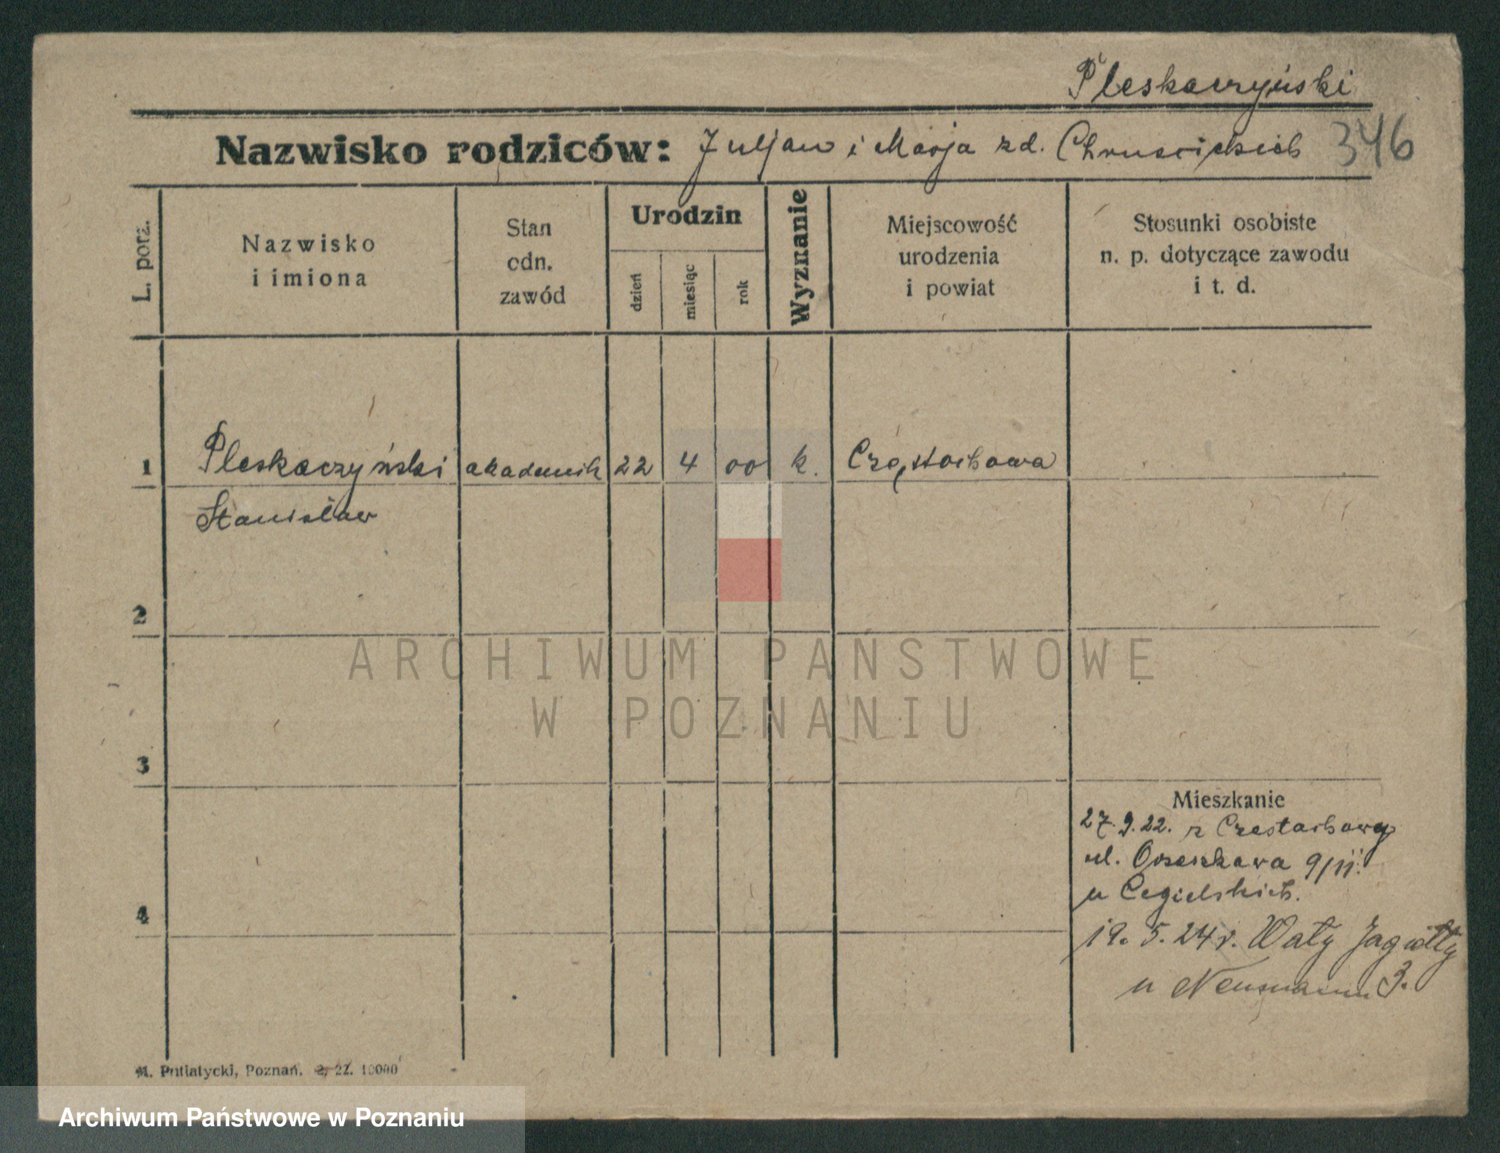 Pleskaczyński
Nazwisko rodziców: Juljan i Marja zd. Chruścickich 346
L. porz.
Nazwisko
i imiona
Stan
cdn.
zawód
Urodzin
dzień
miesiąc
rok
Wyznanie
Miejscowość
urodzenia
i powiat
Stosunki osobiste
n. p. dotyczące zawodu
i t. d.
1 Pleskaczyński akademik 22 4 00 k. Częstochowa
Stanisław
2
3
4
Mieszkanie
27.9.22. z Czestochowy
ul. 9/II.
u Cegielskich.
19. 5. 24 r. Wały Jagiełły
u Neumann 3.
M. Putiatycki, Poznań. 2, 22. 10000
ARCHIWUM PAŃSTWOWE
W POZNANIU
Archiwum Państwowe w Poznaniu